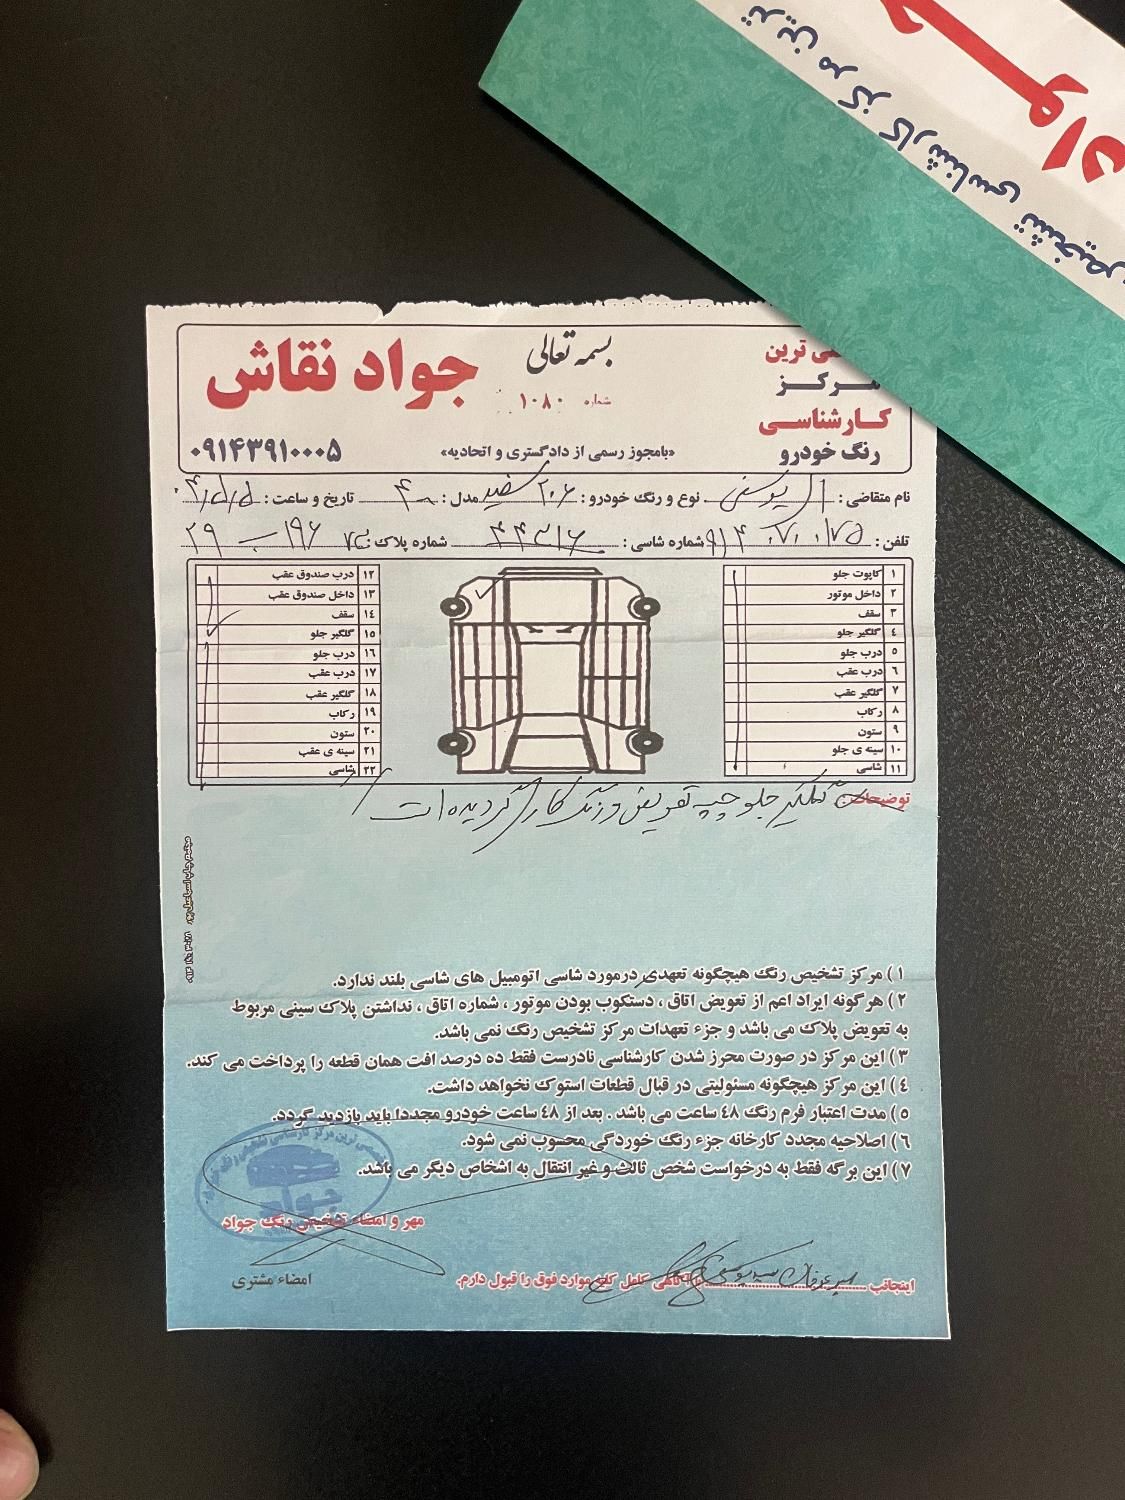 ترین مرکز کارشناسی تشخیص
جواد
بسمه تعالی
جواد نقاش
شماره ۱۰۸۰
ترین
مرکز
کارشناسی
رنگ خودرو
«بامجوز رسمی از دادگستری و اتحادیه»
۰۹۱۴۳۹۱۰۰۰۵
نام متقاضی: یوسفی نوع و رنگ خودرو: ۲۰۶ سفید مدل: تاریخ و ساعت:
تلفن: شماره شاسی: شماره پلاک:
۱ کاپوت جلو
۲ داخل موتور
۳ سقف
۴ گلگیر جلو
۵ درب جلو
۶ درب عقب
۷ گلگیر عقب
۸ رکاب
۹ ستون
۱۰ سینه ی جلو
۱۱ شاسی
۱۲ درب صندوق عقب
۱۳ داخل صندوق عقب
۱۴ سقف
۱۵ گلگیر جلو
۱۶ درب جلو
۱۷ درب عقب
۱۸ گلگیر عقب
۱۹ رکاب
۲۰ ستون
۲۱ سینه ی عقب
۲۲ شاسی
توضیحات: گلگیر جلو چپ تعویض و رنگ کاری گردیده است
۱) مرکز تشخیص رنگ هیچگونه تعهدی درمورد شاسی اتومبیل های شاسی بلند ندارد.
۲) هرگونه ایراد اعم از تعویض اتاق ، دستکوب بودن موتور ، شماره اتاق ، نداشتن پلاک سینی مربوط
به تعویض پلاک می باشد و جزء تعهدات مرکز تشخیص رنگ نمی باشد.
۳) این مرکز در صورت محرز شدن کارشناسی نادرست فقط ده درصد افت همان قطعه را پرداخت می کند.
۴) این مرکز هیچگونه مسئولیتی در قبال قطعات استوک نخواهد داشت.
۵) مدت اعتبار فرم رنگ ۴۸ ساعت می باشد . بعد از ۴۸ ساعت خودرو مجددا باید بازدید گردد.
۶) اصلاحیه مجدد کارخانه جزء رنگ خوردگی محسوب نمی شود.
۷) این برگه فقط به درخواست شخص ثالث و غیر انتقال به اشخاص دیگر می باشد.
مهر و امضاء تشخیص رنگ جواد
اینجانب با آگاهی کامل کلیه موارد فوق را قبول دارم.
امضاء مشتری